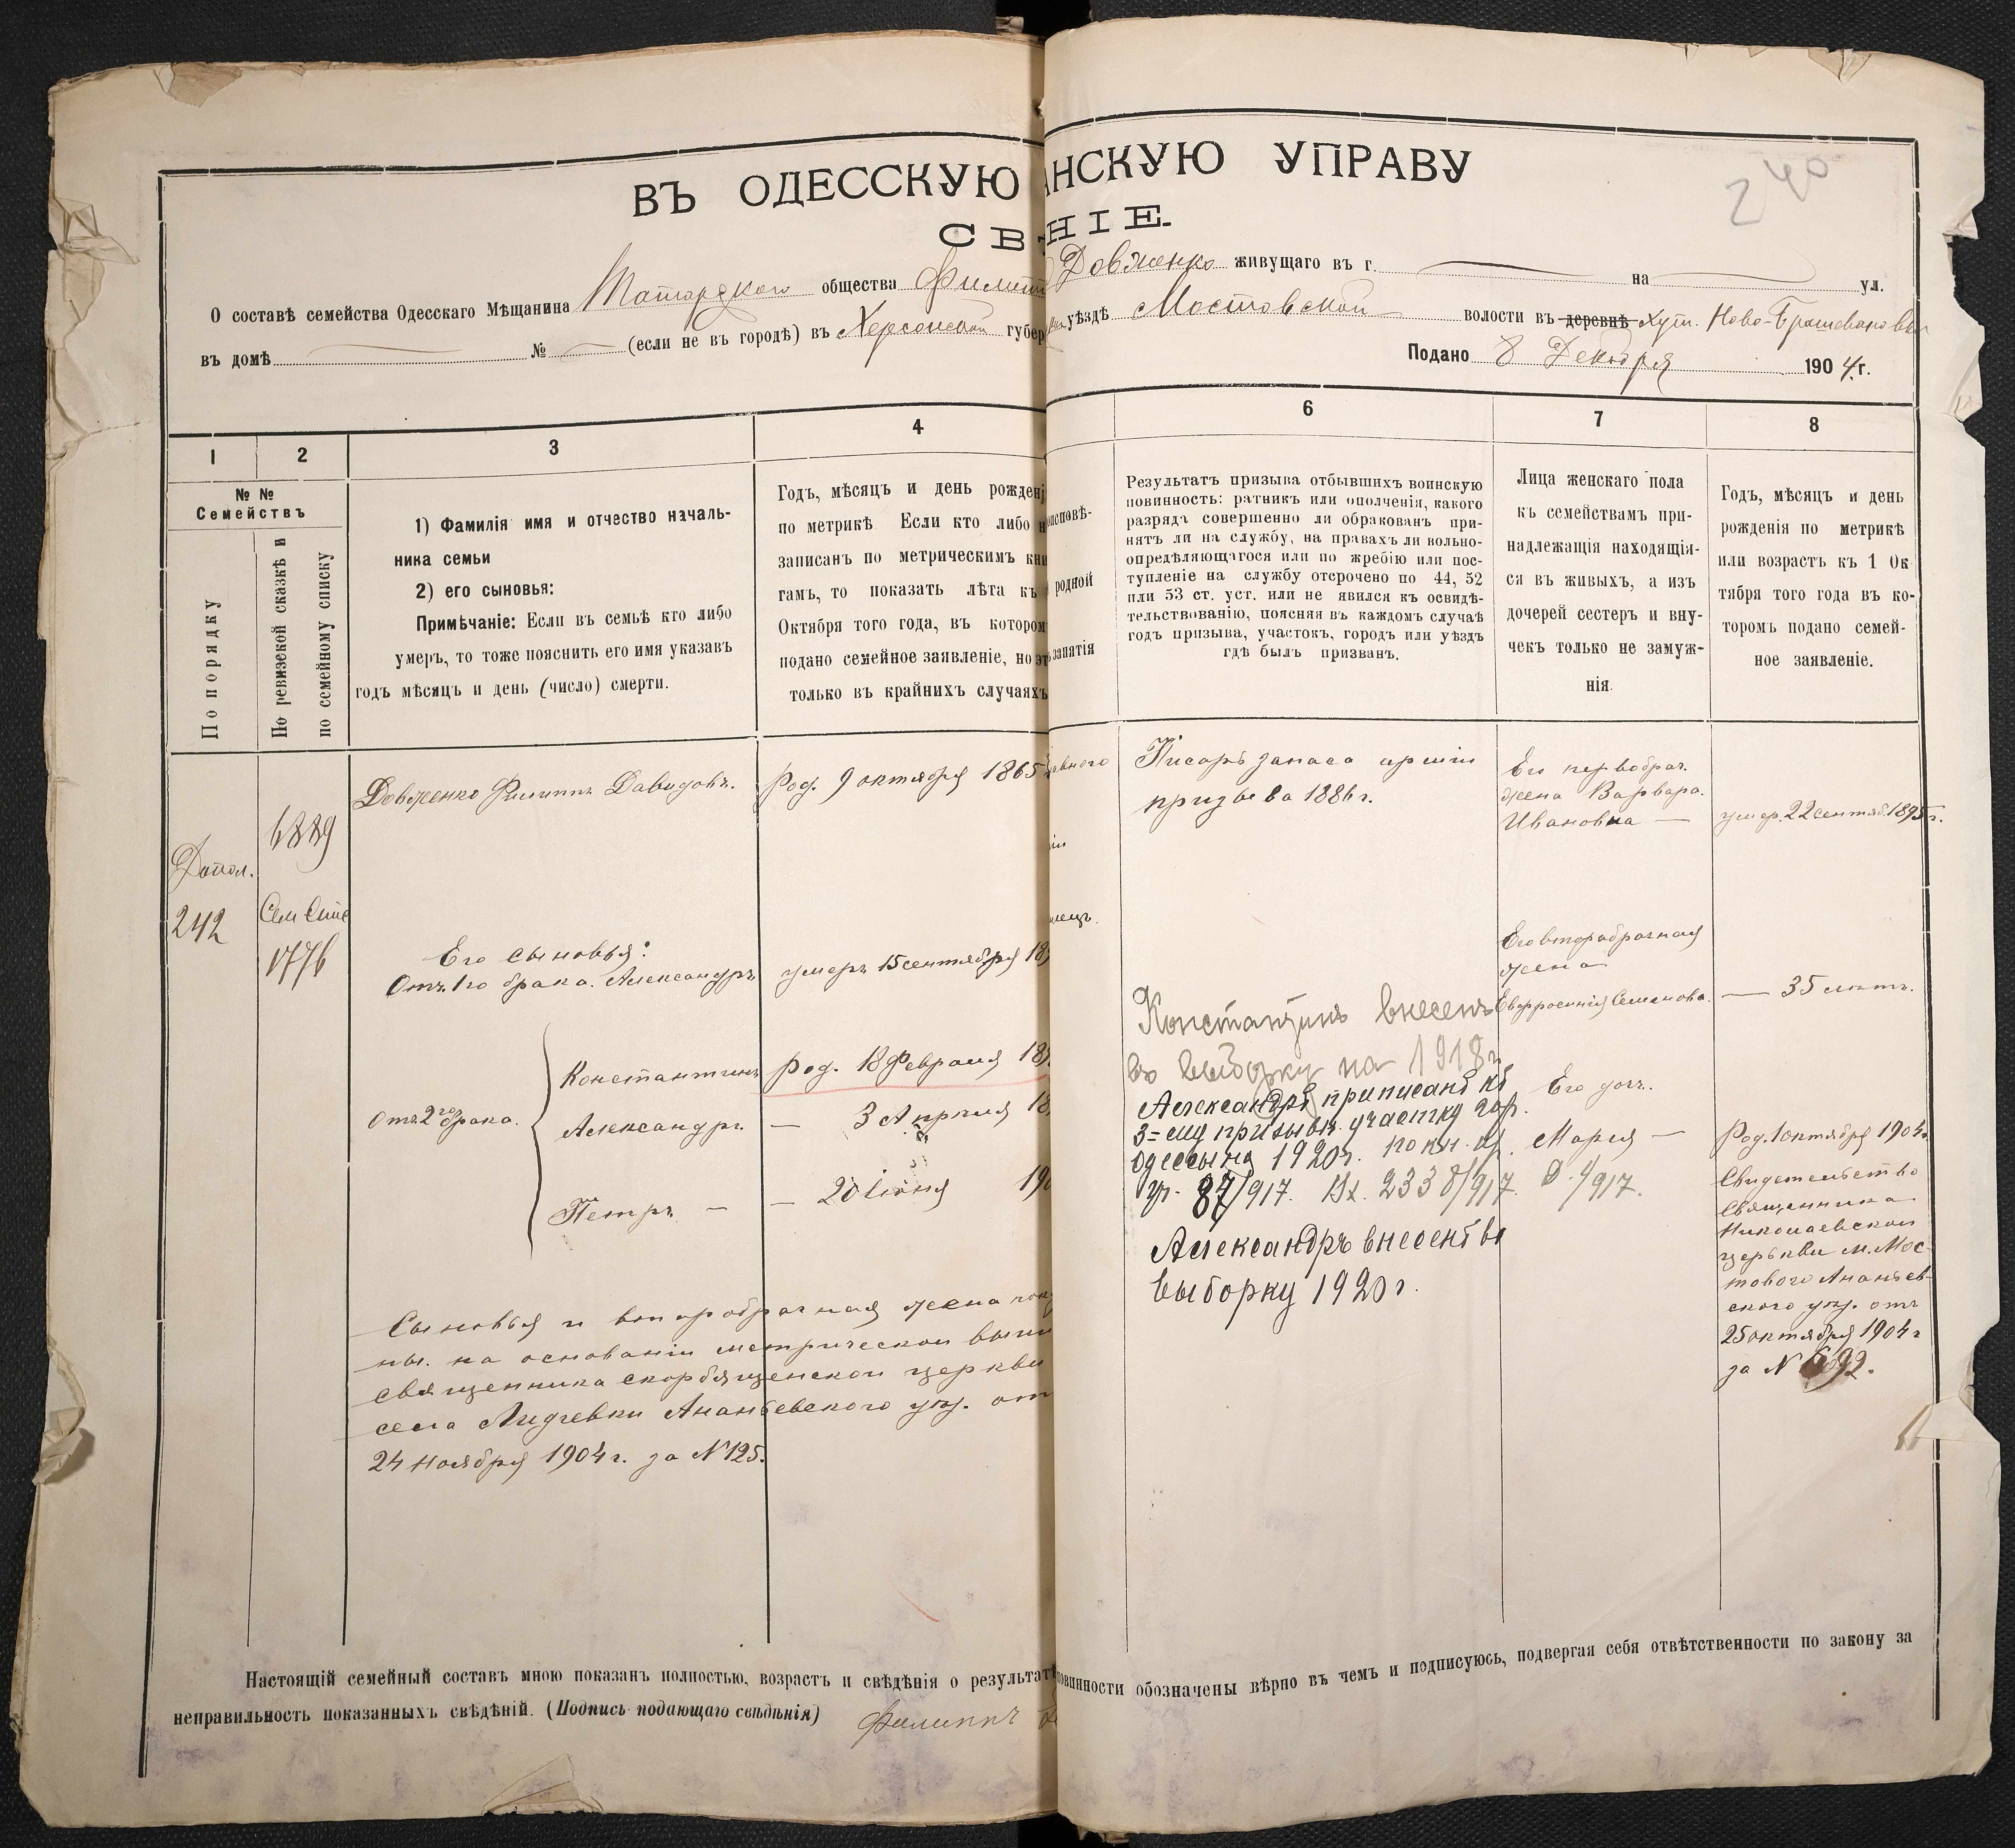 ВЪ ОДЕССКУЮ
АНСКУЮ УПРАВУ
СВ
НІЕ.
240
О составѣ семейства Одесскаго Мѣщанина общества Филип
Довженко живущаго въ г. на ул.
въ домѣ № (если не въ городѣ) въ Херсонской губер
уѣздѣ Мостовской волости въ деревнѣ Хут.
Подано 8 Декабря 1904.г.
1
2
3
4
6
7
8
№ №
Семействъ
По порядку
По ревизской сказкѣ и
по семейному списку
1) Фамилія имя и отчество началь-
ника семьи
2) его сыновья:
Примѣчаніе: Если въ семьѣ кто либо
умеръ, то тоже пояснить его имя указавъ
годъ мѣсяцъ и день (число) смерти.
Годъ, мѣсяцъ и день рожденi
по метрикѣ Если кто либо н
записанъ по метрическимъ кни
гамъ, то показать лѣта къ
Октября того года, въ котором
подано семейное заявленіе, но эт
только въ крайнихъ случаяхъ
исповѣ-
родной
занятія
Результатъ призыва отбывшихъ воинскую
повинность: ратникъ или ополченія, какого
разряда совершенно ли обракованъ при-
нятъ ли на службу, на правахъ ли вольно-
опредѣляющагося или по жребію или пос-
тупленіе на службу отсрочено по 44, 52
или 53 ст. уст. или не явился къ освидѣ-
тельствованію, поясняя въ каждомъ случаѣ
годъ призыва, участокъ, городъ или уѣздъ
гдѣ былъ призванъ.
Лица женскаго пола
къ семействамъ при-
надлежащія находящія-
ся въ живыхъ, а изъ
дочерей сестеръ и вну-
чекъ только не замуж-
нія.
Годъ, мѣсяцъ и день
рожденія по метрикѣ
или возрастъ къ 1 Ок
тября того года въ ко-
торомъ подано семей-
ное заявленіе.
Допол.
242
Сем Спис
1776
Довженко Филиппъ Давидовъ.
Род. 9 октября 1865
Писарь запаса арміи
призыва 1886 г.
Его первобрач.
жена Варвара
Ивановна —
умер. 22 сентяб. 1895 г.
Его сыновья:
Отъ 1го брака. Александръ
умеръ 15 сентября 18
Отъ 2го брака.
Константинъ
Род. 18 Февраля 18
Александръ
— 3 Апрѣля 18
Петръ —
— 20 Іюня 190
Его второбрачная
жена
Евфросинія Семенова. — 35 лѣтъ.
Константинъ внесенъ
въ выборку на 1918 г
Александръ приписанъ къ
3=му призывн. участку гор.
Одессы на 1920 г. по кн. пр.
уч. 87/917. Вх. 2338/917. D. 4/917.
Александръ внесенъ въ
выборку 1920 г.
Его доч.
Марія —
Род. 1 октября 1904 г.
Свидетельство
священника
Николаевской
церькви м. Мос-
тового Ананьев-
ского уѣз. отъ
25 октября 1904 г
Сыновья и второбрачная жена пока
ны. на основаніи метрической выпи
священника скорбященской церкви
села Ананьевского уѣз. от
24 Ноября 1904 г. за № 125.
Настоящій семейный составъ мною показанъ полностью, возрастъ и свѣдѣнія о результат
повинности обозначены вѣрно въ чемъ и подписуюсь, подвергая себя отвѣтственности по закону за
неправильность показанныхъ свѣдѣній. (Подпись подающаго свѣдѣнія) Филиппъ